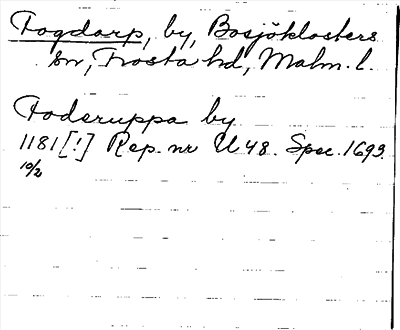 Fogdarp, by, Bosjöklosters
sn, Frosta hd, Malm. l.
Foderuppa by
1181[!] Rep. nr U 48. Spec. 1693.
10/2